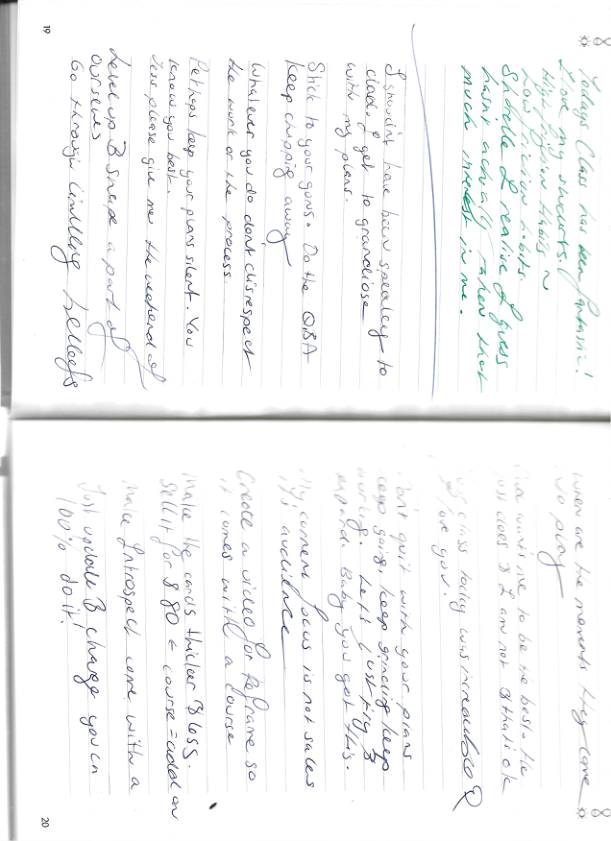 19
Todays Class has been fantastic!
Love my students.
High friction habits n
Low friction habits.
I realise I guess
hasnt actually taken that
much interest in me.
I shouldnt have been speaking to
I get to grandiose
with my plans.
Stick to your guns. Do the Q&A
keep chipping away
Whatever you do dont disrespect
the work or the process.
Perhaps keep your plans silent. You
know you best.
please give me the weekend of
Level up & a part of
ourselves
Go through limiting beliefs
When are the moments they come
to play
wants me to be the best. He
just does & I am not & thats ok
class today was incredible
love you.
Don't quit with your plans
keep going. keep grinding keep
working. Lets just try &
expand. Baby you got this.
My current focus is not sales
its audience
Create a video for Reframe so
it comes with a course
Make the cards thicker & less.
Sell it for $80 + course = add on
Make Introspect come with a
Just update & change you can
100% do it!
20